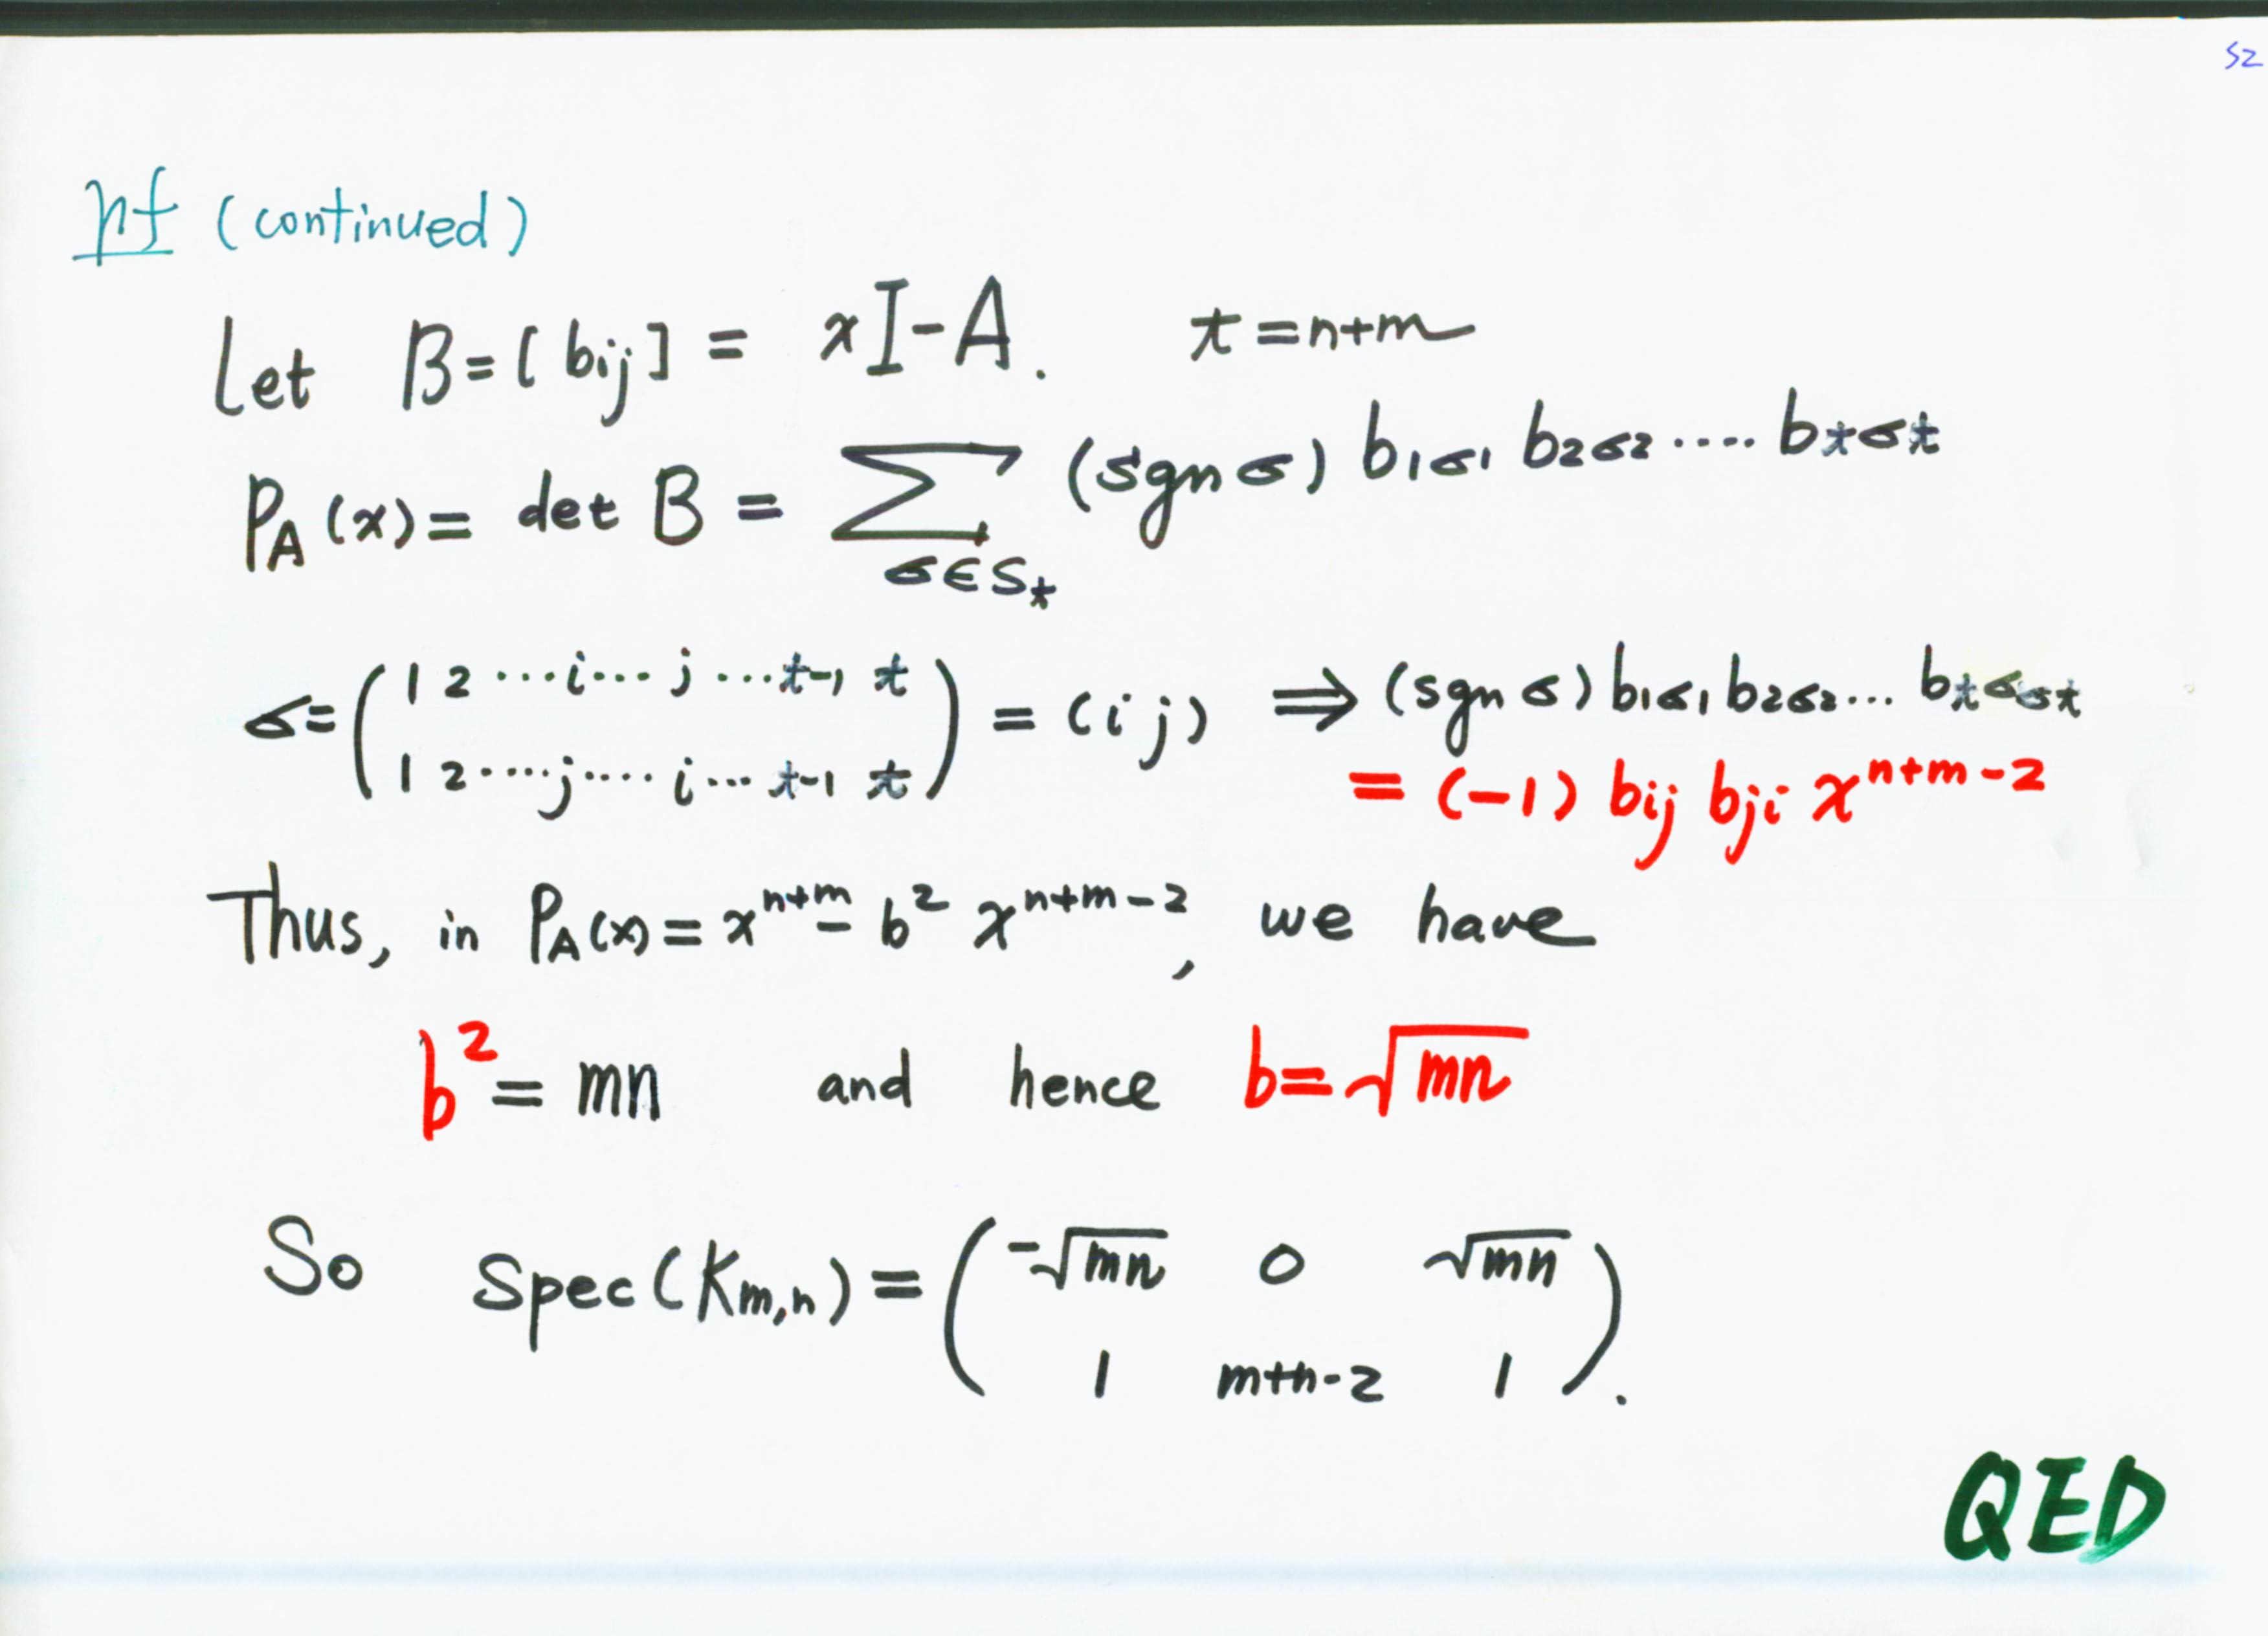 52
pf (continued)
Let B=[bij] = xI-A. t=n+m
PA(x)= det B = ∑ (sgn σ) b1σ1 b2σ2 .... btσt
σ∈St
σ= ( 1 2 ...i... j ...t-1 t ) = (i j) ⟹ (sgn σ) b1σ1 b2σ2... btσt
( 1 2 ....j.... i... t-1 t ) = (-1) bij bji x^{n+m-2}
Thus, in PA(x)= x^{n+m} - b² x^{n+m-2}, we have
b² = mn and hence b=√mn
So Spec(Km,n) = ( -√mn 0 √mn )
( 1 m+n-2 1 ).
QED